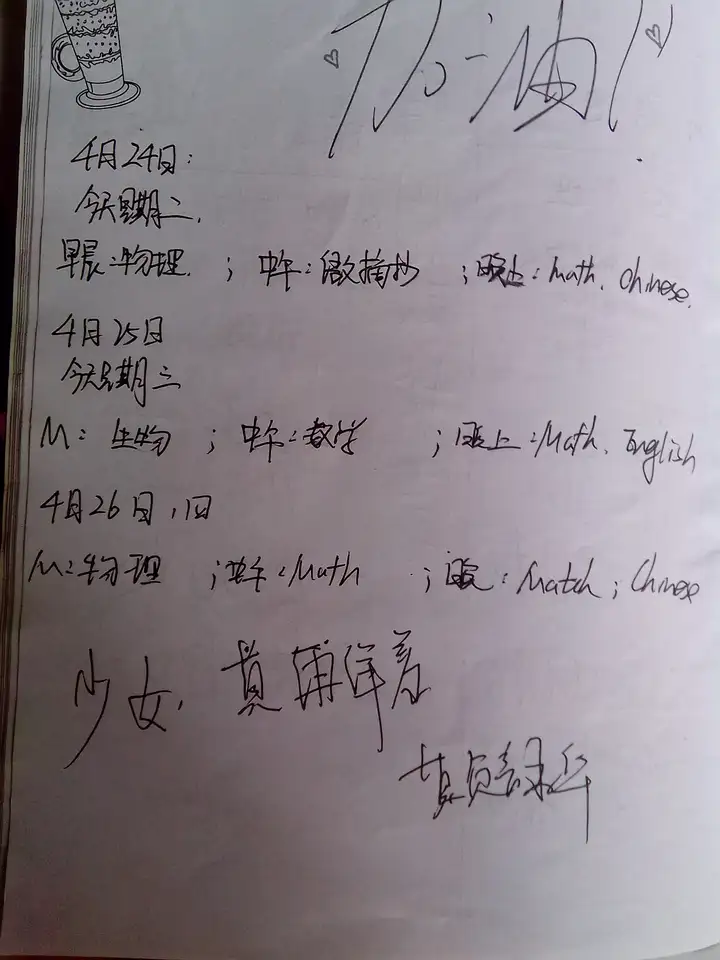 加油!
4月24日:
今天星期二.
早晨:物理. ; 中午:做摘抄 ;晚上:math. Chinese.
4月25日
今天星期三
M: 生物 ; 中午:数学 ;晚上:Math. English
4月26日,四
M:物理 ;中午:Math ;晚:Match;Chinese
少女,莫
莫负韶华